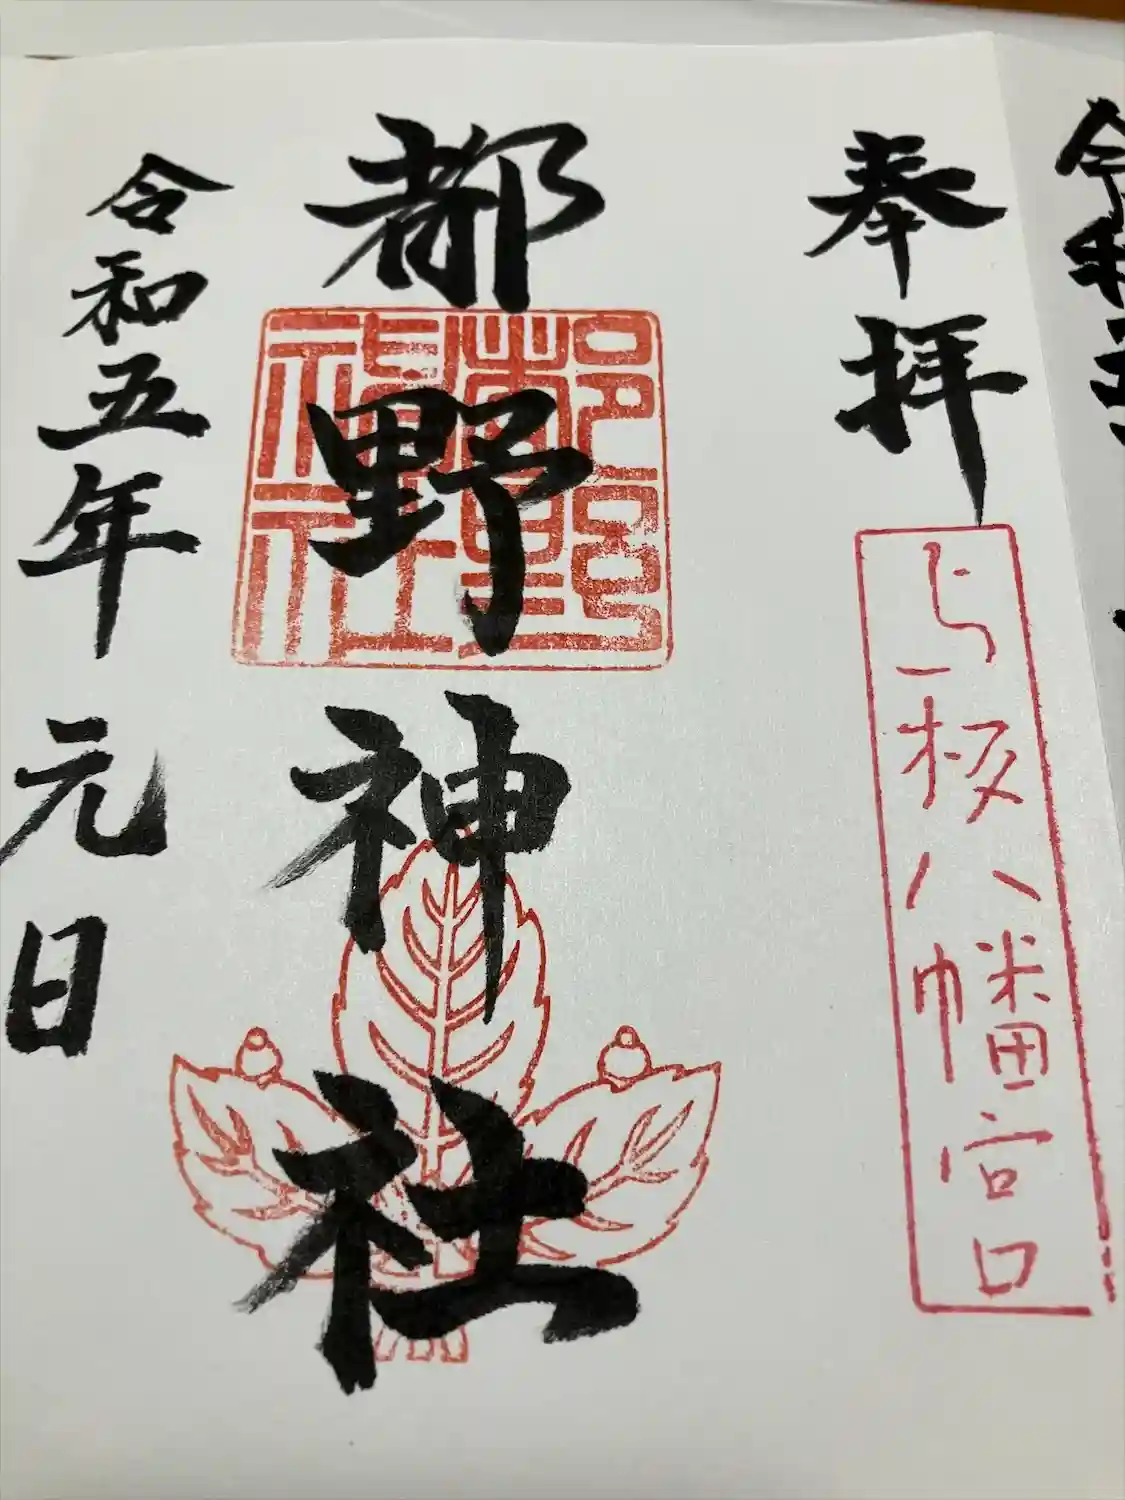 令和五
奉拝
与板八幡宮
都野神社
都野神社
令和五年元日